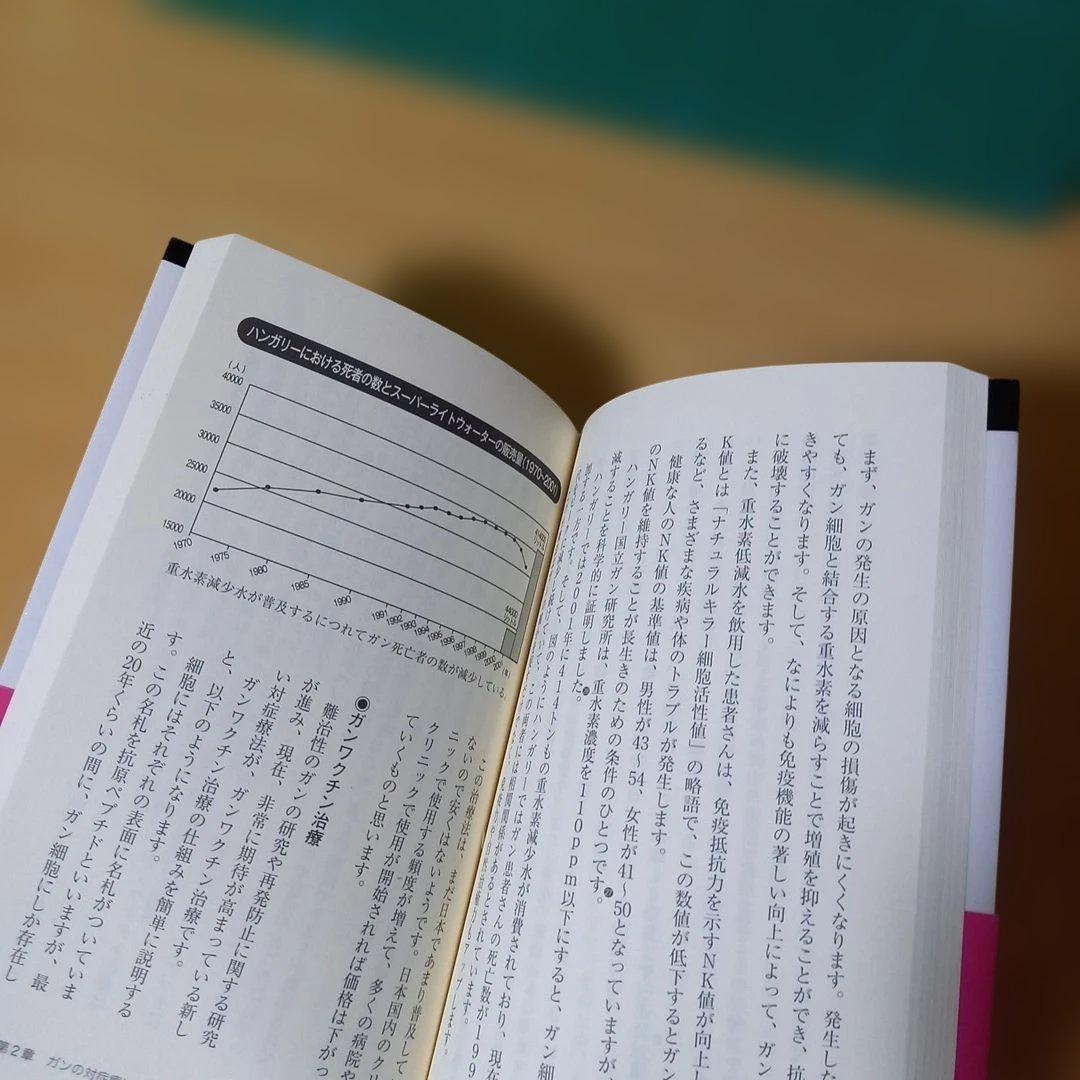 まず、ガンの発生の原因となる細胞の損傷が起きにくくなります。発生した
ても、ガン細胞と結合する重水素を減らすことで増殖を抑えることができ、抗
きやすくなります。そして、なによりも免疫機能の著しい向上によって、ガン
に破壊することができます。
また、重水素低減水を飲用した患者さんは、免疫抵抗力を示すNK値が向上し
K値とは「ナチュラルキラー細胞活性値」の略語で、この数値が低下するとガ
るなど、さまざまな疾病や体のトラブルが発生します。
健康な人のNK値の基準値は、男性が43〜54、女性が41〜50となっていますが
のNK値を維持することが長生きのための条件のひとつです。
ハンガリー国立ガン研究所は、重水素濃度を110ppm以下にすると、ガン細
減することを科学的に証明しました。
ハンガリーでは2001年に414トンもの重水素減少水が消費されており、現在
ハンガリーにおける死者の数とスーパーライトウォーターの販売量(1970~2001)
(人)
40000
35000
30000
25000
20000
15000
1970
1975
1980
1985
1990
1991
1992
1994
1995
1996
1998
1999
2000
2001
(年)
重水素減少水が普及するにつれてガン死亡者の数が減少している。
この治療法は、まだ日本であまり普及して
ないので安くはないようです。日本国内のクリ
ニックで使用する頻度が増えて、多くの病院や
クリニックで使用が開始されれば価格は下がっ
ていくものと思います。
●ガンワクチン治療
難治性のガンの研究や再発防止に関する研究
が進み、現在、非常に期待が高まっている新し
い対症療法が、ガンワクチン治療です。
ガンワクチン治療の仕組みを簡単に説明する
と、以下のようになります。
細胞にはそれぞれの表面に名札がついていま
す。この名札を抗原ペプチドといいますが、最
近の20年くらいの間に、ガン細胞にしか存在し
第2章 ガンの対症